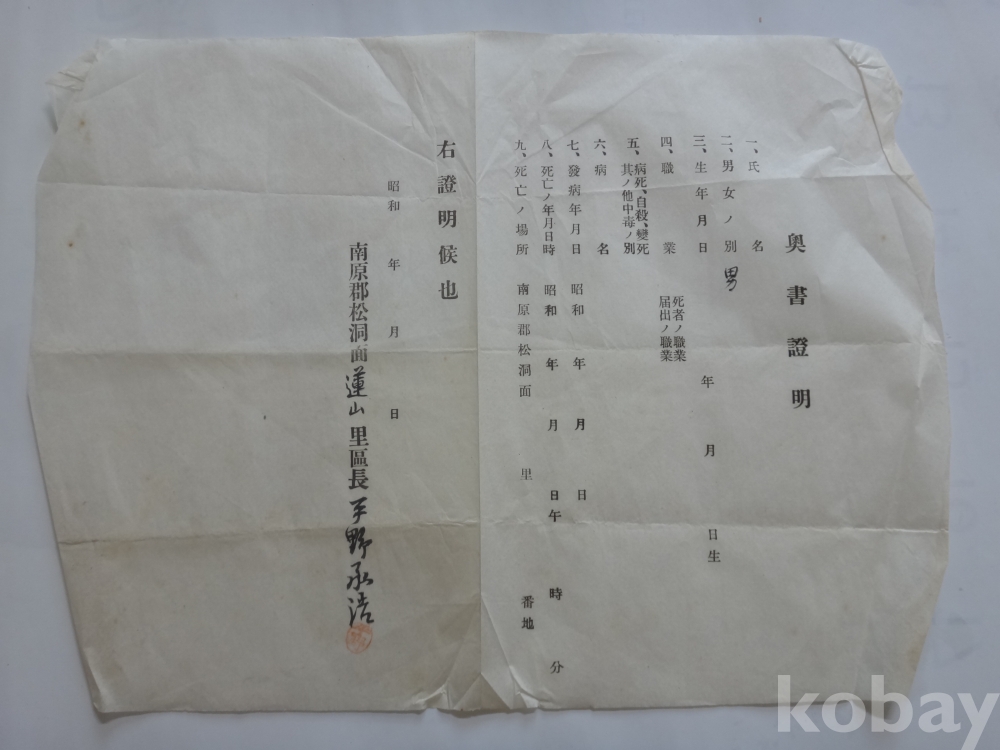 奥書證明
一、氏名
二、男女ノ別 男
三、生年月日 年 月 日生
四、職業 死者ノ職業
届出ノ職業
五、病死、自殺、變死
其ノ他中毒ノ別
六、病名
七、發病年月日 昭和 年 月 日
八、死亡ノ年月日時 昭和 年 月 日午 時 分
九、死亡ノ場所 南原郡松洞面 里 番地
右證明候也
昭和 年 月 日
南原郡松洞面蓮山里區長 平野永浩
kobay